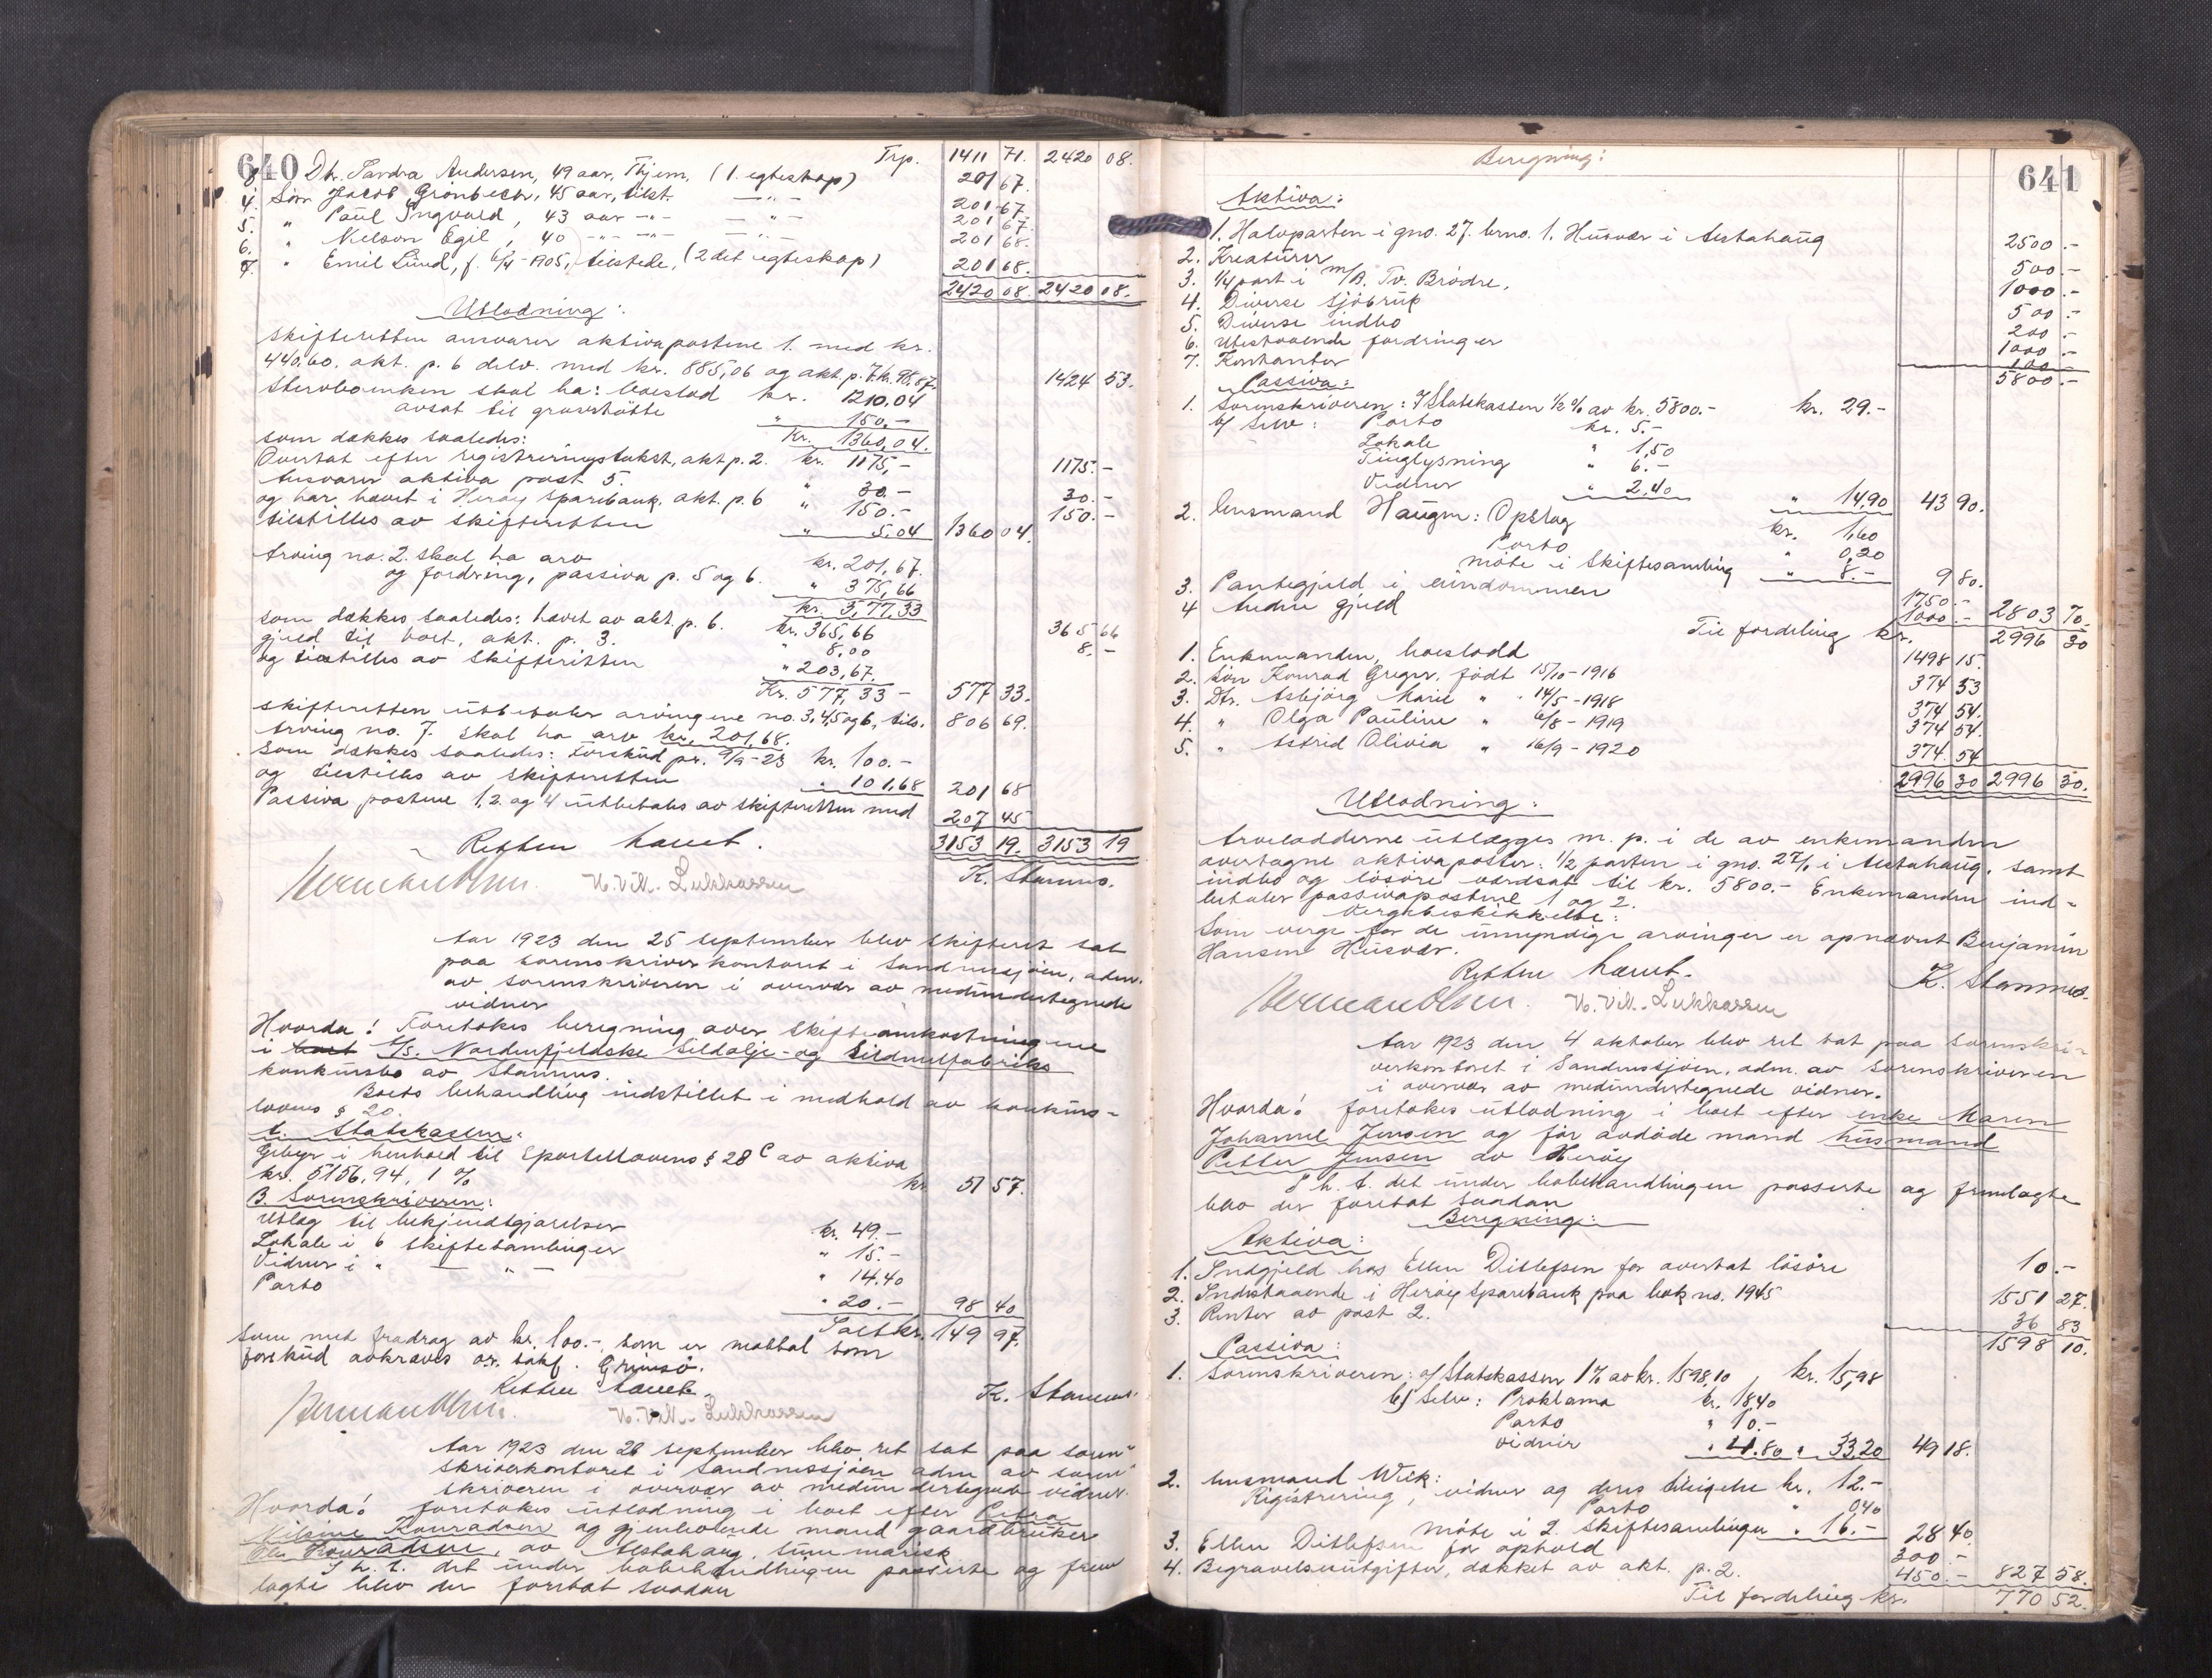 640
Trp. 1411 71. 2420 08.
3. Dtr. Sandra Andersen, 49 aar, Thjem, (1. egteskap) 201 67.
4. Søn Jacob Grönbech, 45 aar, tilst. — " — 201 67
5. " Paul Ingvald, 43 aar —"— — " — 201 67
6. " Nelson Egil, 40 —"— —"— — " — 201 68
7. " Emil Lund, f. 6/4-1905, tilstede, (2det egteskap) 201 68.
2420 08. 2420 08.
Utlodning:
Skifteretten ansvarer aktivapostene 1. med kr.
440.60. akt. p. 6 delv. med kr. 885,06 og akt. p. 7. kr. 98,87. 1424 53.
Stervboenken skal ha: boeslod kr. 1210.04
avsat til gravstötte " 150.-
Kr. 1360,04.
som dækkes saaledes:
Overtat efter registreringstakst, akt p. 2. kr. 1175,- 1175.-
Ansvarer aktiva post 5. " 30.- 30.-
og har hævet i Heröy Sparebank, akt. p. 6 " 150.- 150.-
tilstilles av skifteretten " 5.04 1360 04.
Arving no. 2. skal ha arv kr. 201,67.
og fordring, passiva p. 5 og 6. " 375,66
kr. 5,77,33
som dækkes saaledes: hævet av akt. p. 6. kr. 365,66 365 66
gjeld til boet, akt. p. 3. " 8,00 8.-
og tilstilles av skifteretten " 203,67.
Kr. 577,33 - 577 33.
Skifteretten utbetaler arvingene no. 3,4,5 og 6, tils. 806 69.
Arving no. 7. skal ha arv kr. 201,68.
som dækkes saaledes: Forskud pr. 9/9-23 kr. 100.-
og tilstilles av skifteretten " 101,68 201 68
Passiva postene 1, 2 og 4 utbetales av skifteretten med 207 45
3153 19. 3153 19
Retten hævet.
K. Stamnes.
Herman Olsen. N. Vill. Lukkassen
Aar 1923 den 25 september blev skifteret sat
paa sorenskriverkontoret i Sandnessjöen, adm.
av sorenskriveren i overvær av medundertegnede
vidner
Hvorda! Foretokes beregning over skifteomkostningene
i boet A/S. Nordenfjeldske Sildolje- og Sildmelfabriks
konkursbo av Stamnes.
Boets behandling indstillet i medhold av konkurs-
lovens § 20.
A. Statskassen:
Gebyr i henhold til Sportellovens § 28 c av aktiva
kr. 5156.94, 1 % kr. 51 57.
B. Sorenskriveren:
Utlæg til bekjendtgjörelser kr. 49.-
Lokale i 6 skiftesamlinger " 15.-
Vidner i " — " — " 14.40
Porto " 20.- 98 40
Ialt kr. 149 97.
Som med fradrag av kr. 100.-, som er mottat som
forskud avkræves or. sakf. Grimsö.
Retten hævet.
K. Stamnes
Herman Olsen. N. Vill. Lukkassen
Aar 1923 den 28 september blev ret sat paa soren-
skriverkontoret i Sandnessjöen adm av soren-
skriveren i overvær av medundertegnede vidner.
Hvorda! foretokes utlodning i boet efter Petra
Nilsine Konradsen og gjenlevende mand gaardbruker
Ole Konradsen, av Alstahaug, summarisk
I h. t. det under bobehandlingen passerte og frem
lagte blev der foretat saadan
641
Beregning:
Aktiva:
1. Halvparten i gno. 27. brno. 1. Husvær i Alstahaug 2500.-
2. Kreaturer 500.-
3. 1/4 part i M/B. To. Brödre, 1000.-
4. Diverse sjöbruk 500.-
5. Diverse indbo 200.-
6. Utestaaende fordringer 1000.-
7. Kontanter 100.-
5800.-
Passiva:
1. Sorenskriveren: a/ Statskassen 1/2 % av kr. 5800.- kr. 29.-
b/ Selv: Porto kr. 5.-
Lokale " 1,50
Tinglysning " 6.-
Vidner " 2.40 " 14,90 43 90.
2. Lensmand Haugen: Opslag kr. 1,60
Porto " 0,20
möte i Skiftesamling " 8.- 9 80.
3. Pantegjeld i eiendommen 1750.-
4 Anden gjeld 1000.- 2803 70.
Til fordeling kr. 2996 30
1. Enkemanden, boeslodd 1498 15.
2. Sön Konrad Greger, födt 15/10-1916 374 53
3. Dtr. Asbjörg Marie " 14/5-1918 374 54.
4. " Olga Pauline " 6/8-1919 374 54.
5. " Astrid Olivia " 16/9-1920 374. 54
2996 30 2996 30.
Utlodning:
Arveloddene utlægges m. p. i de av enkemanden
overtagne aktivaposter: 1/2 parten i gno. 27/1 i Alstahaug, samt
indbo og lösöre værdsat til kr. 5800.- Enkemanden ind-
betaler passivapostene 1 og 2.
Vergebeskikkelse:
Som verge for de umyndige arvinger er opnævnt Benjamin
Hansen Husvær.
Retten hævet.
K. Stamnes.
Herman Olsen. N. Vill. Lukkassen
Aar 1923 den 4 oktober blev ret sat paa sorenskri-
verkontoret i Sandnessjöen, adm. av sorenskriveren
i overvær av medundertegnede vidner.
Hvorda! foretokes utlodning i boet efter enke Maren
Johanne Jensen og för avdöde mand husmand
Petter Jensen av Heröy
I h. t. det under bobehandlingen passerte og fremlagte
blev der foretat saadan
Beregning:
Aktiva:
1. Indgjeld hos Ellen Ditlefsen for overtat lösöre 10.-
2. Indestaaende i Heröy Sparebank paa bok no. 1945 1551 27.
3. Renter av post 2. 36 83
1598 10.
Passiva:
1. Sorenskriveren: a/ Statskassen 1 % av kr. 1598,10 kr. 15,98
b/ Selv: Proklama kr. 18,40
Porto " 10.-
vidner " 4.80 " 33,20 49 18.
2. Lensmand Wiik:
Registrering, vidner og deres tilsigelse kr. 12.-
Porto " 0,40
möte i 2. skiftesamlinger " 16.- 28 40.
3. Ellen Ditlefsen for ophold 300.-
4. Begravelsesutgifter, dækket av akt. p. 2. 450.- 827 58.
Til fordeling kr. 770 52.